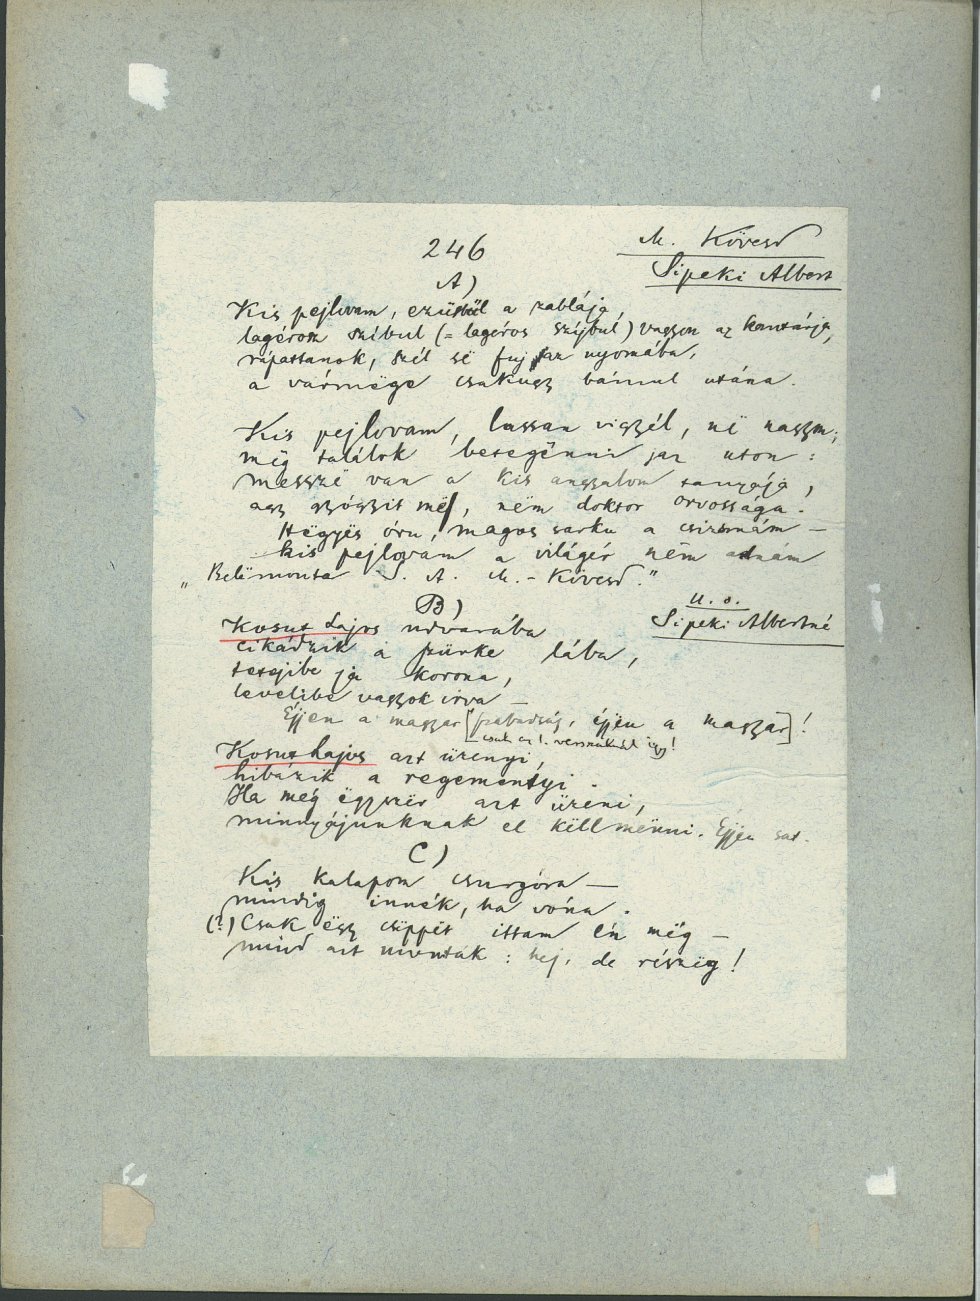 246
M. Kövesd
Sipeki Albert
A)
Kis pejlovam, ezüstbűl a zablája,
lagéros szíbul (= lagéros szíjbul) vagyon az kantárja,
rípattanok, szél së fuj az nyomába,
a vármëge csakugy bámul utána.
Kis pejlovam, lassan vigyél, në nagyon;
míg találok betegënni jaz uton:
messzë van a kis angyalom tanyája,
agy gyógyit më, nëm doktor orvossága.
Hëgyës óru, magos sarku a csizmám —
kis pejlovam a világér nëm adnám
„Belëmonta S. A. M.-Kövesd."
B)
u. o.
Sipeki Albertné
Kosut Lajos udvarába
cikádzik a szürke lába,
tetejibe ja korona,
levelibe vagyok irva —
Éjjen a magyar [szabadság, éjjen a magyar]!
csak ez!
Kosut Lajos azt üzenyi,
hibázik a regementyi.
Ha még ëgyszër azt üzeni,
minnyájunknak el këll mënni. Éjjen sat.
C)
Kis kalapom csurgóra —
mindig innék, ha vóna.
(?) Csak ëgy csöppët ittam én mëg —
mind azt montak: hej, de részëg!